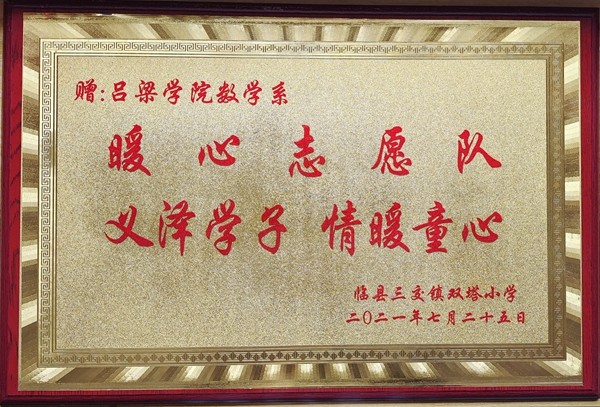 赠:吕梁学院数学系
暖心志愿队
义泽学子 情暖童心
临县三交镇双塔小学
二〇二一年七月二十五日